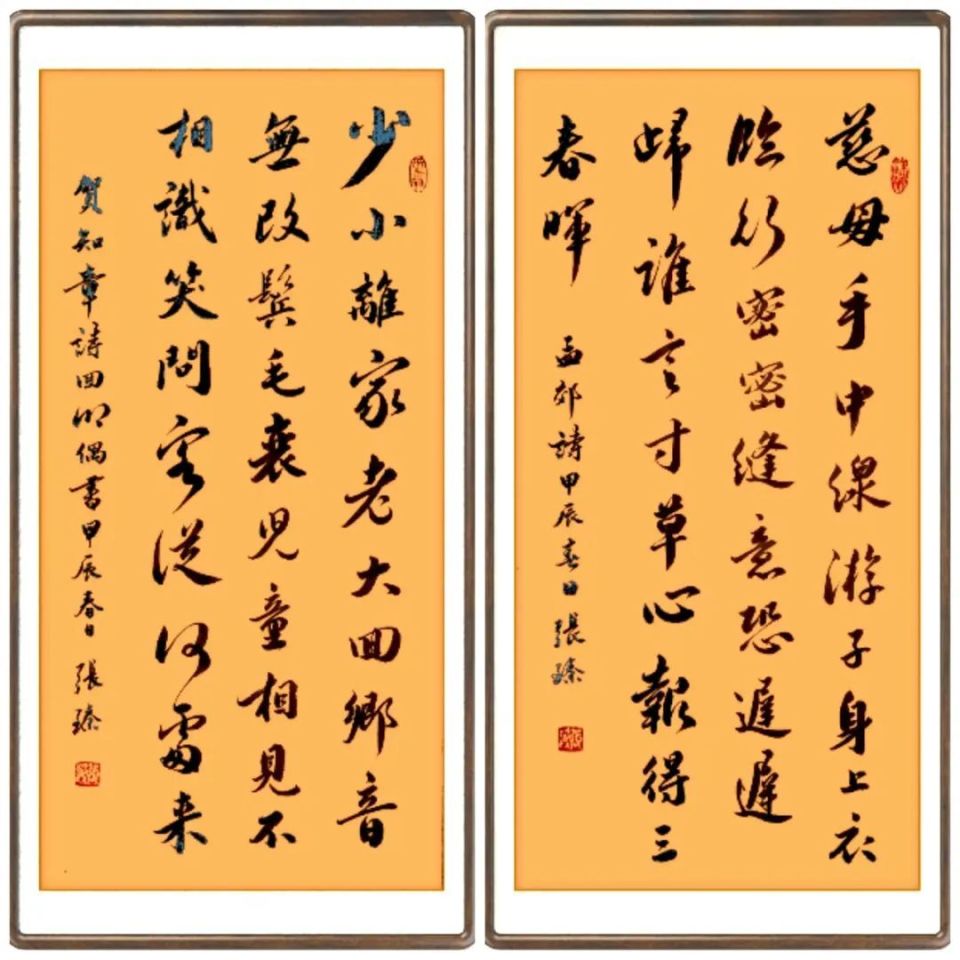 少小離家老大回鄉音
無改鬢毛衰児童相見不
相識笑問客從何處来
賀知章詩回鄉偶書甲辰春日張臻
慈母手中線游子身上衣
臨行密密縫意恐遲遲
歸誰言寸草心報得三
春暉
孟郊詩甲辰春日張臻